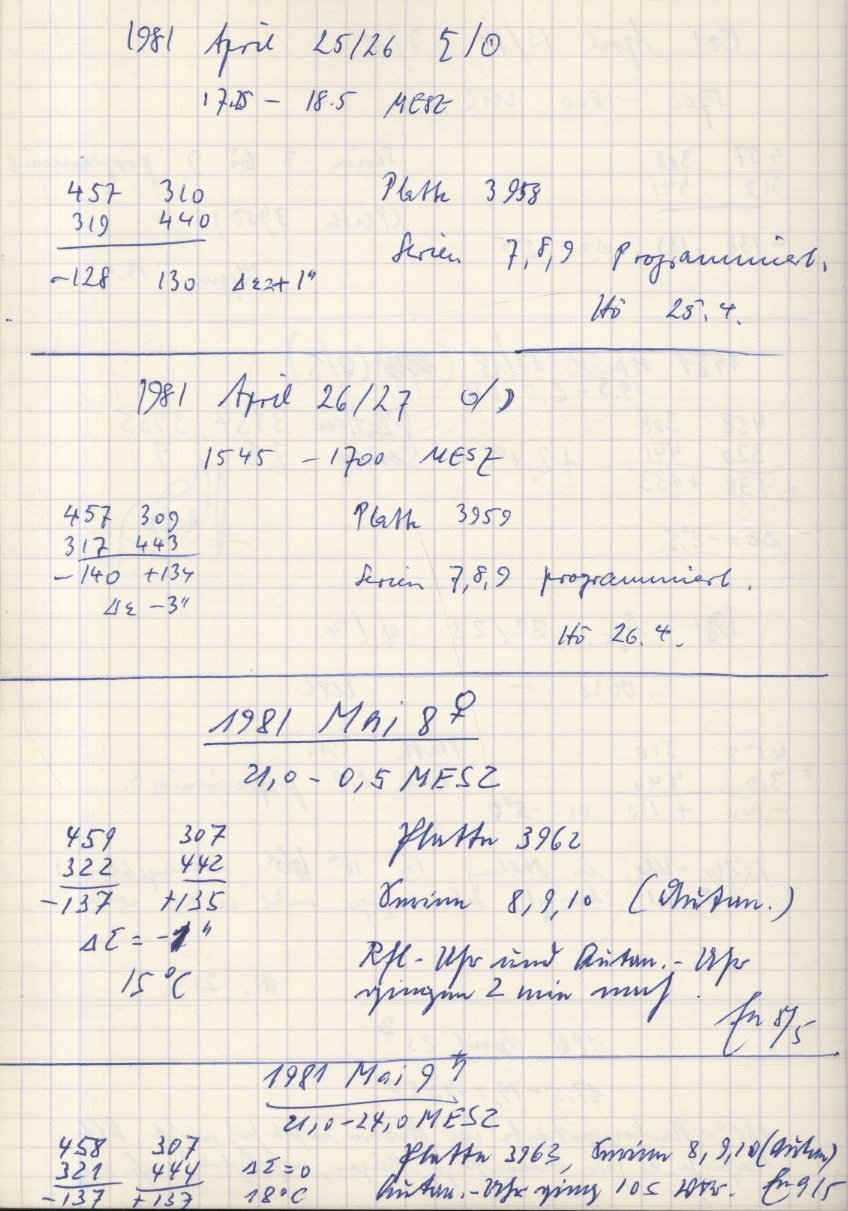 1981 April 25/26 ♄/☉
17.25 – 18.5 MESZ
457 310 Platte 3958
319 440
Serien 7,8,9 Programmiert.
-128 130 Δε=+1"
Hö 25.4.
1981 April 26/27 ☉/☽
1545 – 1700 MESZ
457 309 Platte 3959
317 443
-140 +134 Serien 7,8,9 programmiert.
Δε -3"
Hö 26.4.
1981 Mai 8 ♀
21,0 – 0,5 MESZ
459 307 Platte 3962
322 442
-137 +135 Serien 8,9,10 (Autom.)
ΔΣ = -1"
Rfl-Uhr und Autom.-Uhr
15°C gingen 2 min nach.
8/5
1981 Mai 9 ♄
21,0–24,0 MESZ
458 307 Platte 3963, Serien 8,9,10 (Autom)
321 444 ΔΣ=0
-137 +137 18°C Autom.-Uhr ging 10s vor. 9/5